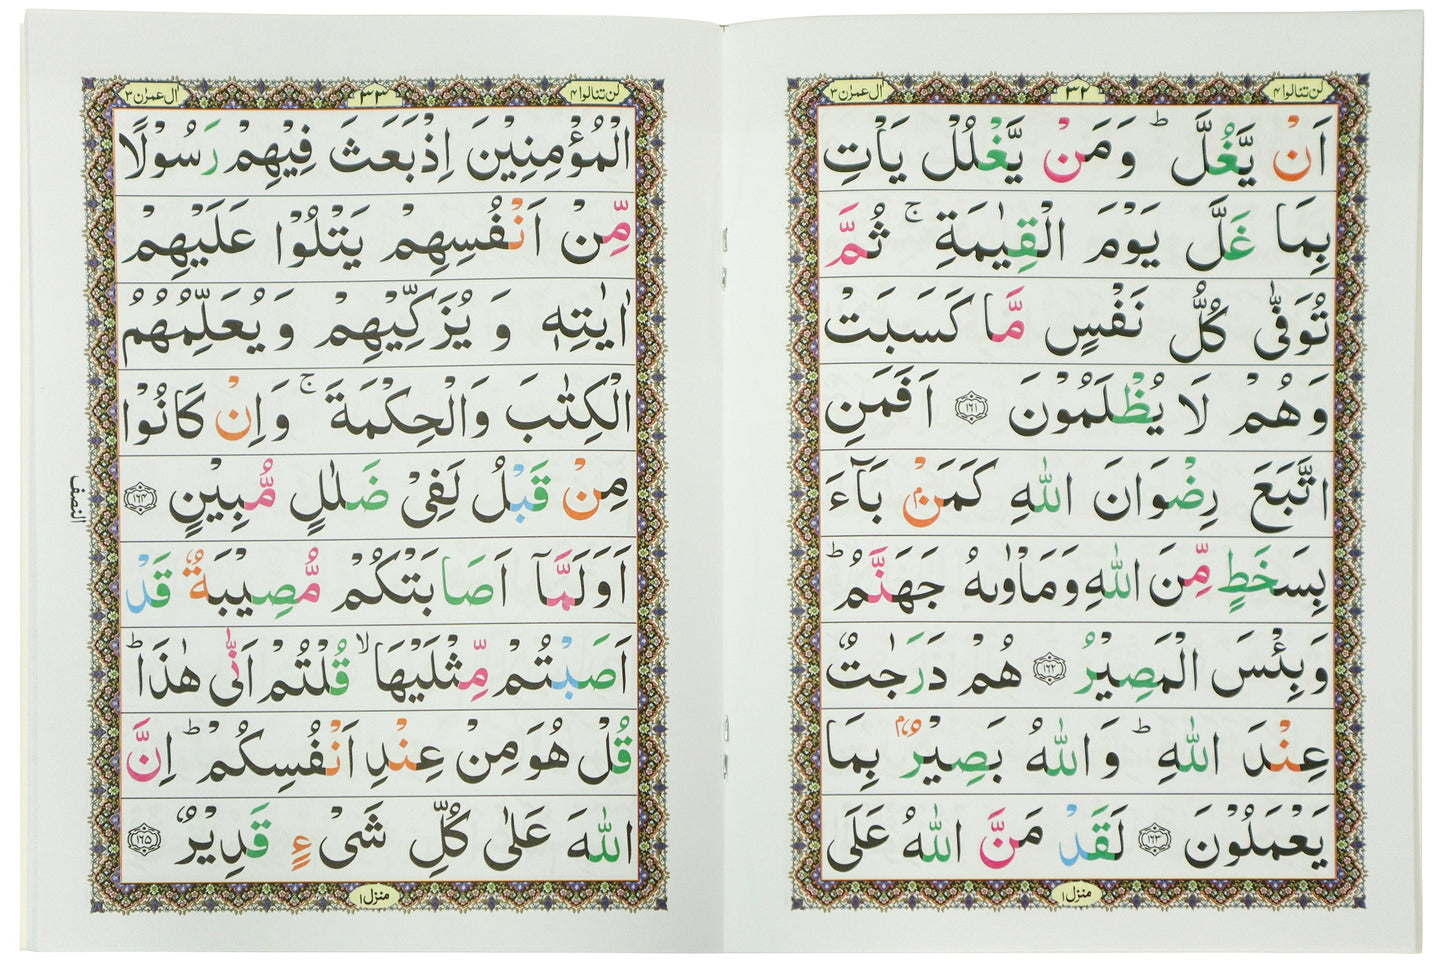 لن تنالوا ۴
۳۲
اٰل عمرٰن ۳
اَنْ يَّغُلَّ ؕ وَمَنْ يَّغْلُلْ يَاْتِ
بِمَا غَلَّ يَوْمَ الْقِيٰمَةِ ۚ ثُمَّ
تُوَفّٰى كُلُّ نَفْسٍ مَّا كَسَبَتْ
وَهُمْ لَا يُظْلَمُوْنَ ﴿۱۶۱﴾ اَفَمَنِ
اتَّبَعَ رِضْوَانَ اللّٰهِ كَمَنْۢ بَآءَ
بِسَخَطٍ مِّنَ اللّٰهِ وَمَاْوٰىهُ جَهَنَّمُ ؕ
وَبِئْسَ الْمَصِيْرُ ﴿۱۶۲﴾ هُمْ دَرَجٰتٌ
عِنْدَ اللّٰهِ ؕ وَاللّٰهُ بَصِيْرٌۢ بِمَا
يَعْمَلُوْنَ ﴿۱۶۳﴾ لَقَدْ مَنَّ اللّٰهُ عَلَى
منزل ۱
لن تنالوا ۴
۳۳
اٰل عمرٰن ۳
الْمُؤْمِنِيْنَ اِذْ بَعَثَ فِيْهِمْ رَسُوْلًا
مِّنْ اَنْفُسِهِمْ يَتْلُوْا عَلَيْهِمْ
اٰيٰتِهٖ وَيُزَكِّيْهِمْ وَيُعَلِّمُهُمُ
الْكِتٰبَ وَالْحِكْمَةَ ۚ وَاِنْ كَانُوْا
مِنْ قَبْلُ لَفِىْ ضَلٰلٍ مُّبِيْنٍ ﴿۱۶۴﴾
النصف
اَوَلَمَّآ اَصَابَتْكُمْ مُّصِيْبَةٌ قَدْ
اَصَبْتُمْ مِّثْلَيْهَا ۙ قُلْتُمْ اَنّٰى هٰذَا ؕ
قُلْ هُوَ مِنْ عِنْدِ اَنْفُسِكُمْ ؕ اِنَّ
اللّٰهَ عَلٰى كُلِّ شَىْءٍ قَدِيْرٌ ﴿۱۶۵﴾
منزل ۱